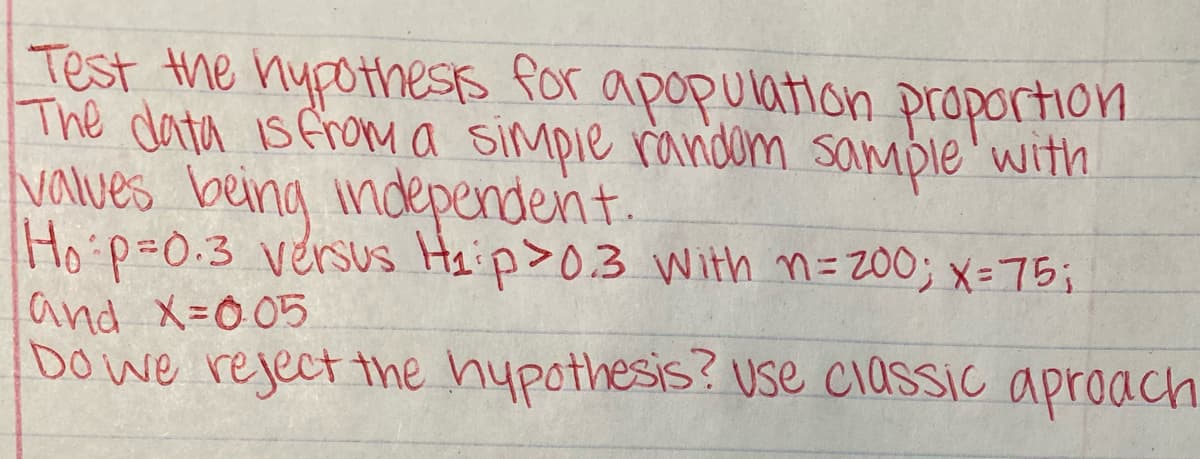 Test the hypothesis for apopulation proportion
The data is from a simple random sample with
values being independent.
H₀:p=0.3 versus H₁:p>0.3 with n=200; x=75;
and x=0.05
Do we reject the hypothesis? use classic aproach